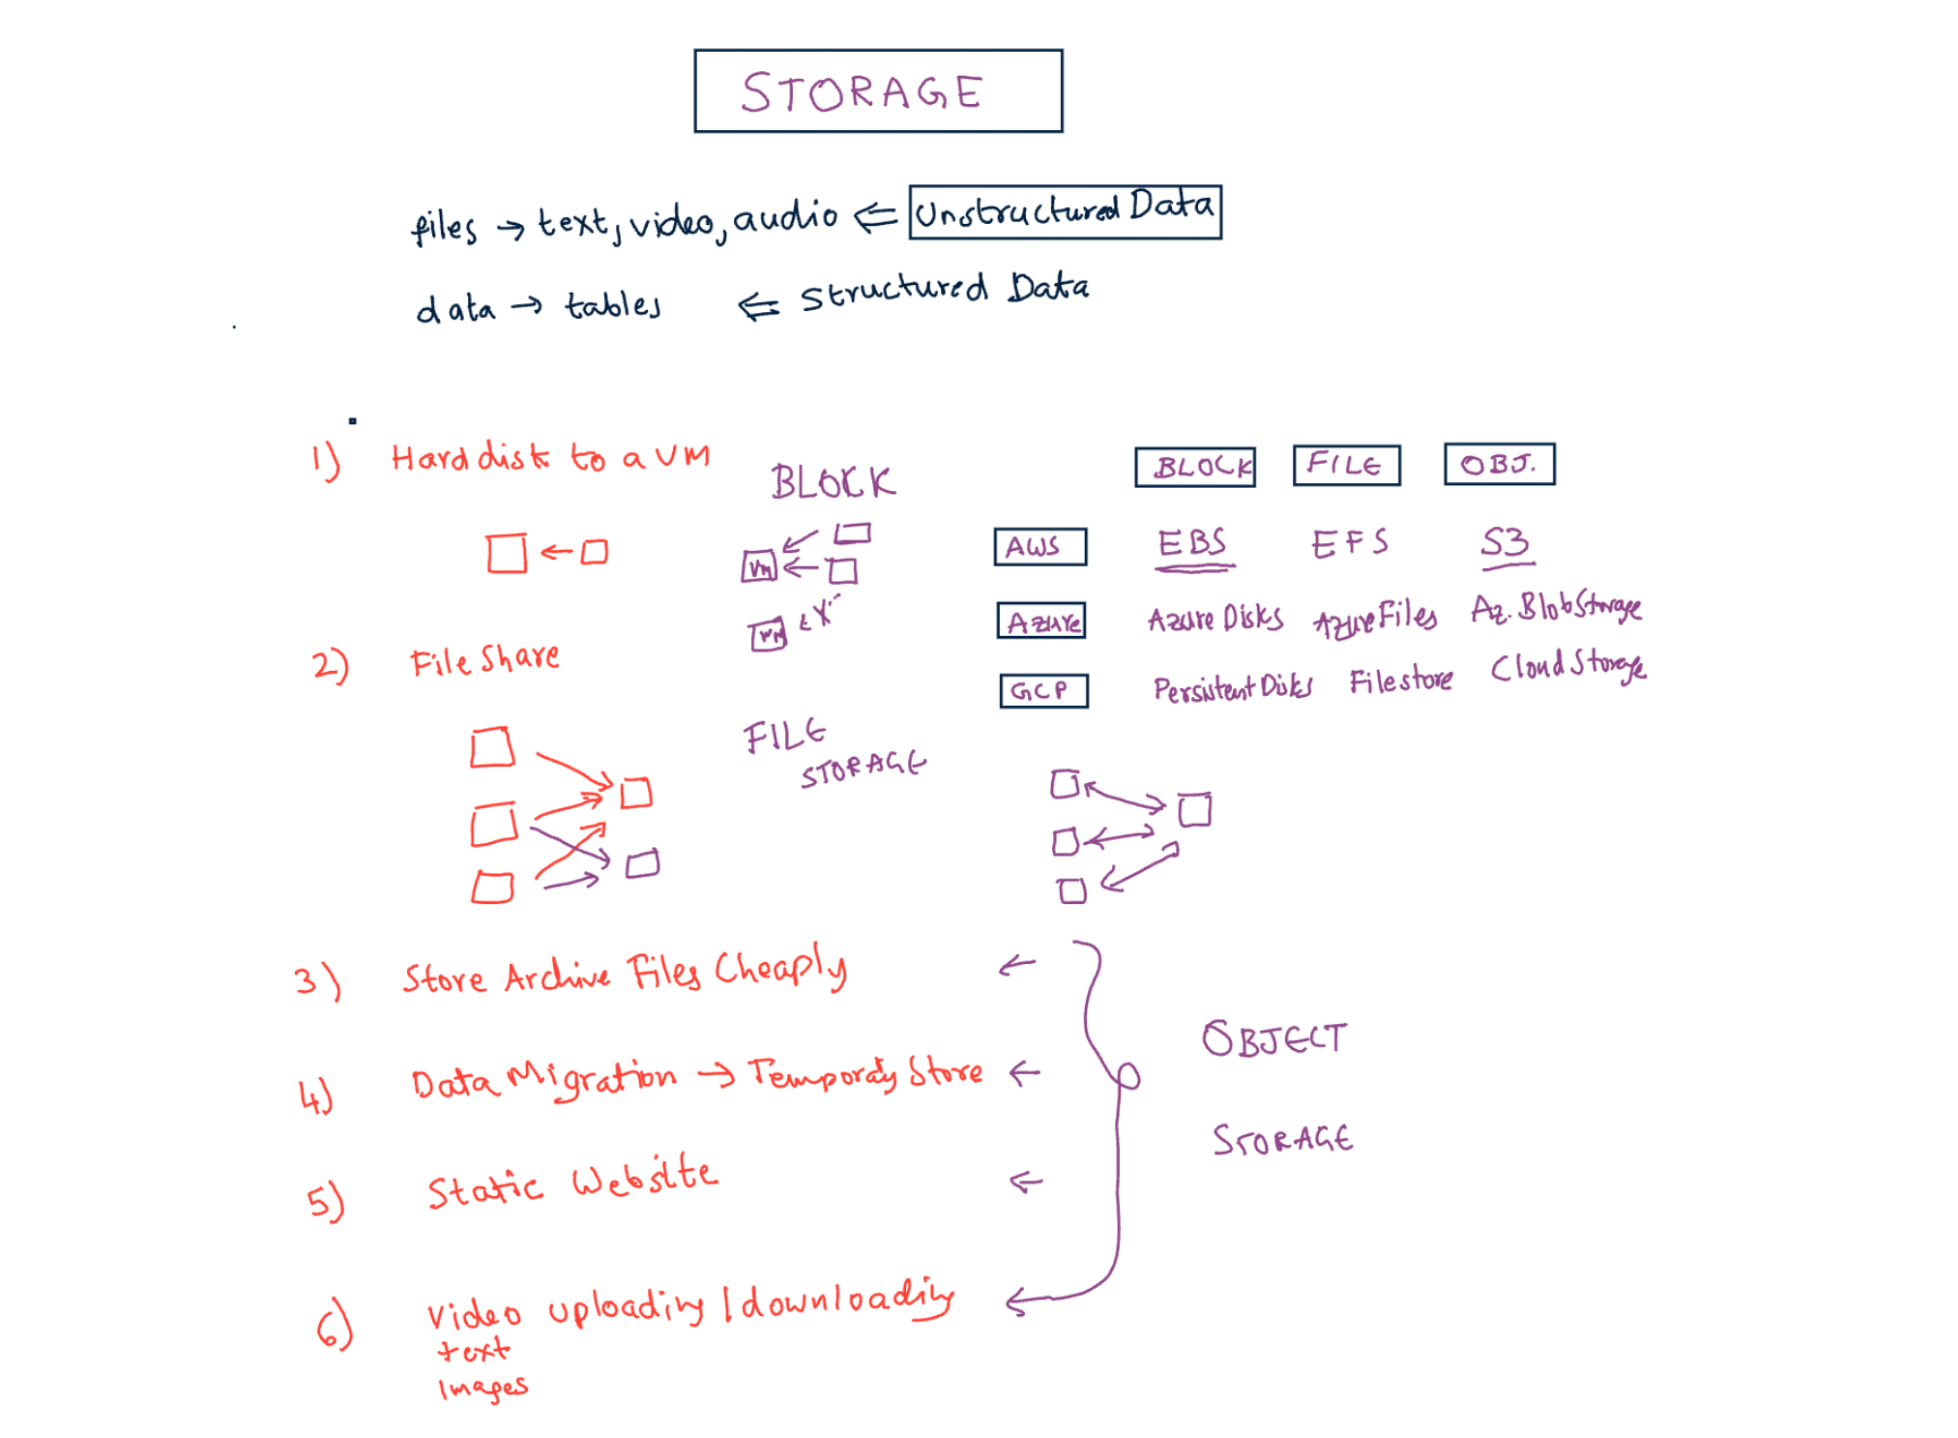 STORAGE
files → text, video, audio ⇐ Unstructured Data
data → tables ⇐ Structured Data
1) Hard disk to a VM
BLOCK
VM
VM
X
2) File Share
FILE
STORAGE
BLOCK FILE OBJ.
AWS EBS EFS S3
Azure Azure Disks Azure Files Az. Blob Storage
GCP Persistent Disks Filestore Cloud Storage
3) Store Archive Files Cheaply ←
4) Data Migration → Temporary Store ←
5) Static Website ←
6) Video uploading / downloading ←
text
Images
OBJECT
STORAGE